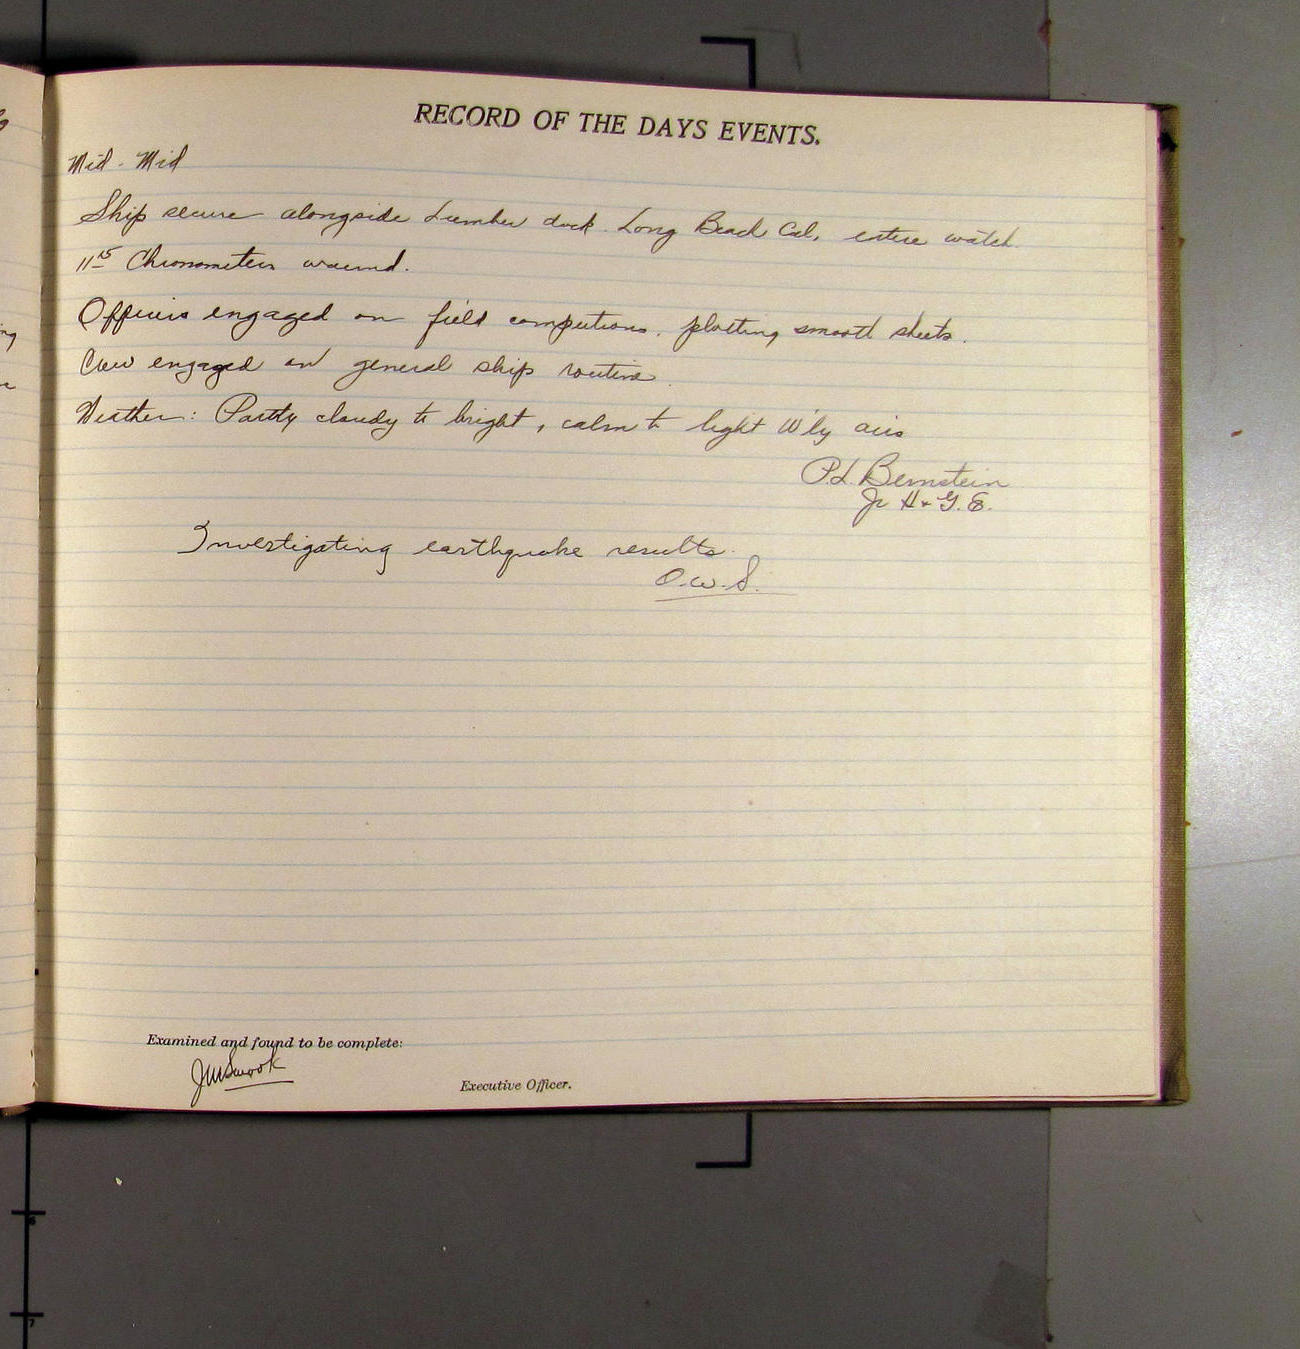 RECORD OF THE DAYS EVENTS.
Mid - Mid
Ship secure alongside Lumber dock Long Beach Cal, entire watch.
11 15 Chronometers wound.
Officers engaged on field computions, plotting smooth sheets.
Crew engaged on general ship routine.
Weather: Partly cloudy to bright, calm to light W'ly airs
P.L. Bernstein
Jr H + G. E.
Investigating earthquake results.
O.W.S.
Examined and found to be complete:
Executive Officer.
6
7